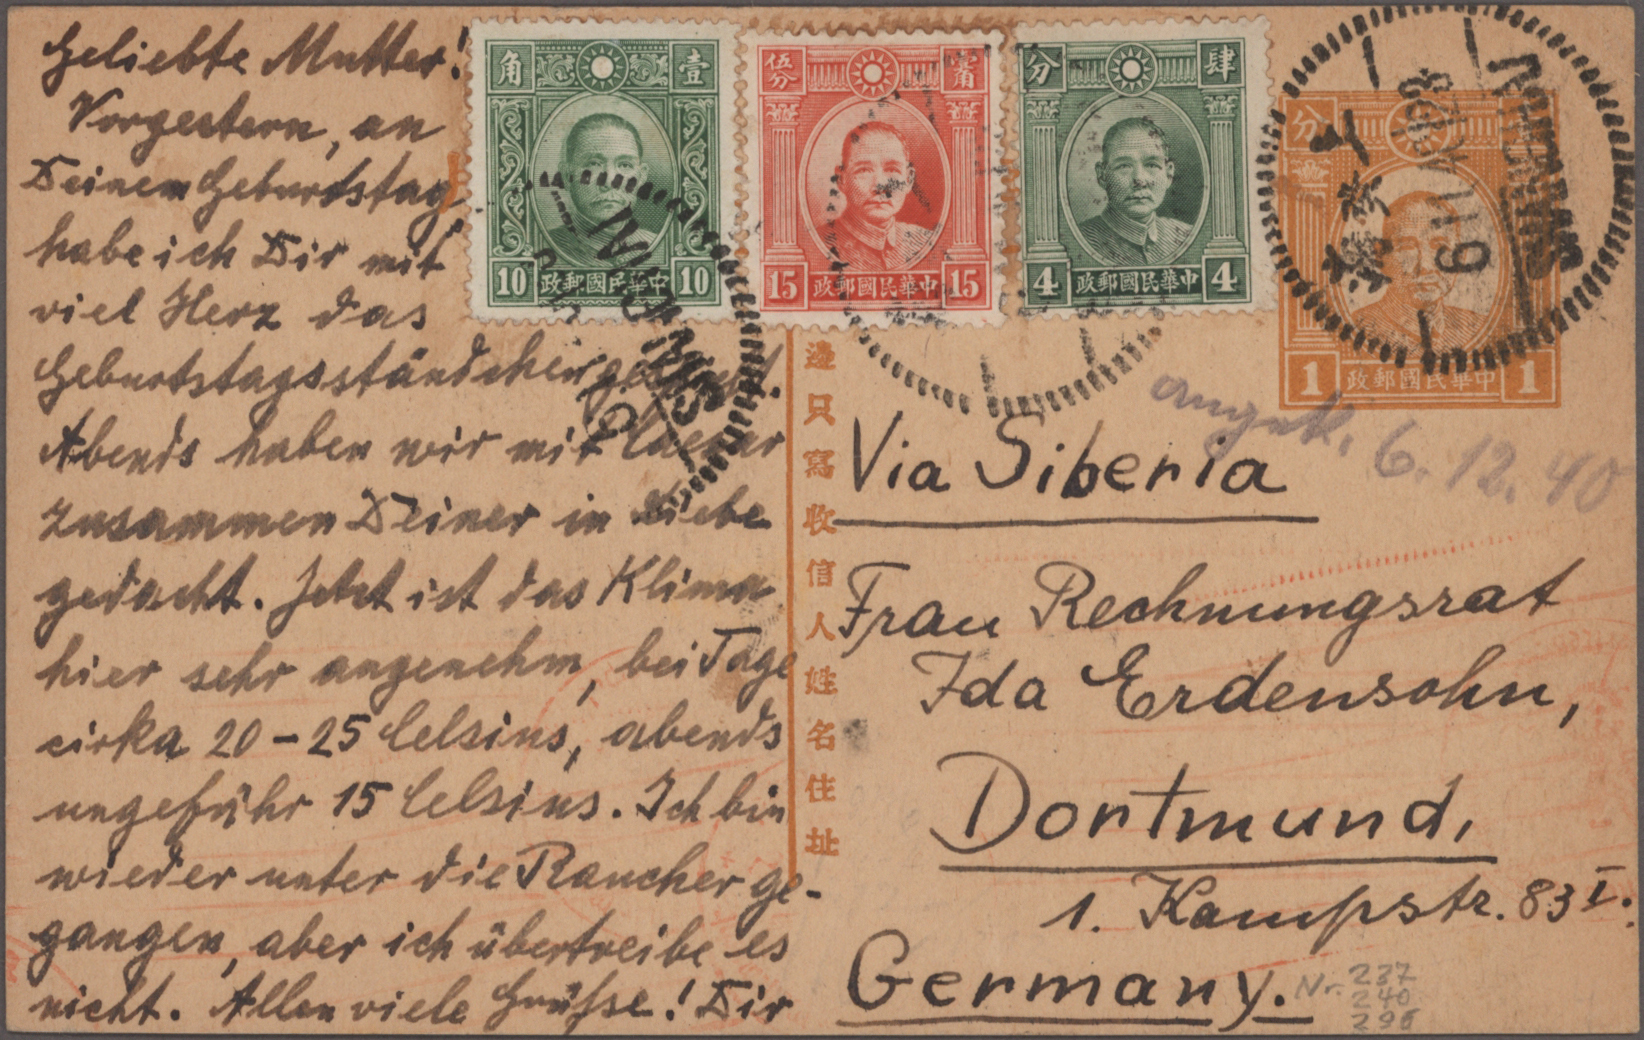 Geliebte Mutter!
Vorgestern, an
Deinem Geburtstag
habe ich Dir mit
viel Herz das
Geburtstagsständchen
Abends haben wir mit
zusammen Deiner in Liebe
gedacht. Jetzt ist das Klima
hier sehr angenehm, bei Tage
cirka 20-25 Celsius, abends
ungefähr 15 Celsius. Ich bin
wieder unter die Raucher ge-
gangen, aber ich übertreibe es
nicht. Allen viele Grüsse! Dir
角 壹
10 政郵國民華中 10
伍分 角
15 政郵國民華中 15
分 肆
4 政郵國民華中 4
分
1 政郵國民華中 1
上海
SHANGHAI
邊只寫收信人姓名住址
angek. 6.12.40
Via Siberia
Frau Rechnungsrat
Ida Erdensohn,
Dortmund,
1. Kampstr. 83 I.
Germany.
Nr. 237
240
298